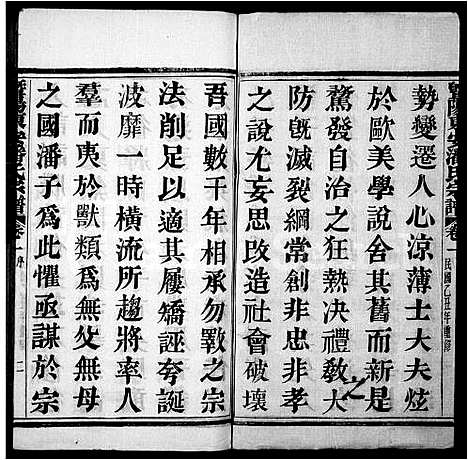 勢變遷人心涼薄士大夫炫
於歐美學說舍其舊而新是
騖發自治之狂熱決禮敎大
防旣滅綱常創非忠非孝
之說尤思改造社會破壞
之
民國乙丑年重修
吾國數千年相承勿斁之宗
法削足以適其屨矯誣夸誕
波靡一時橫流所趨將率人
羣而夷於獸類爲無父無母
之國潘子爲此懼亟謀於宗
潘氏宗譜 卷一 序 二